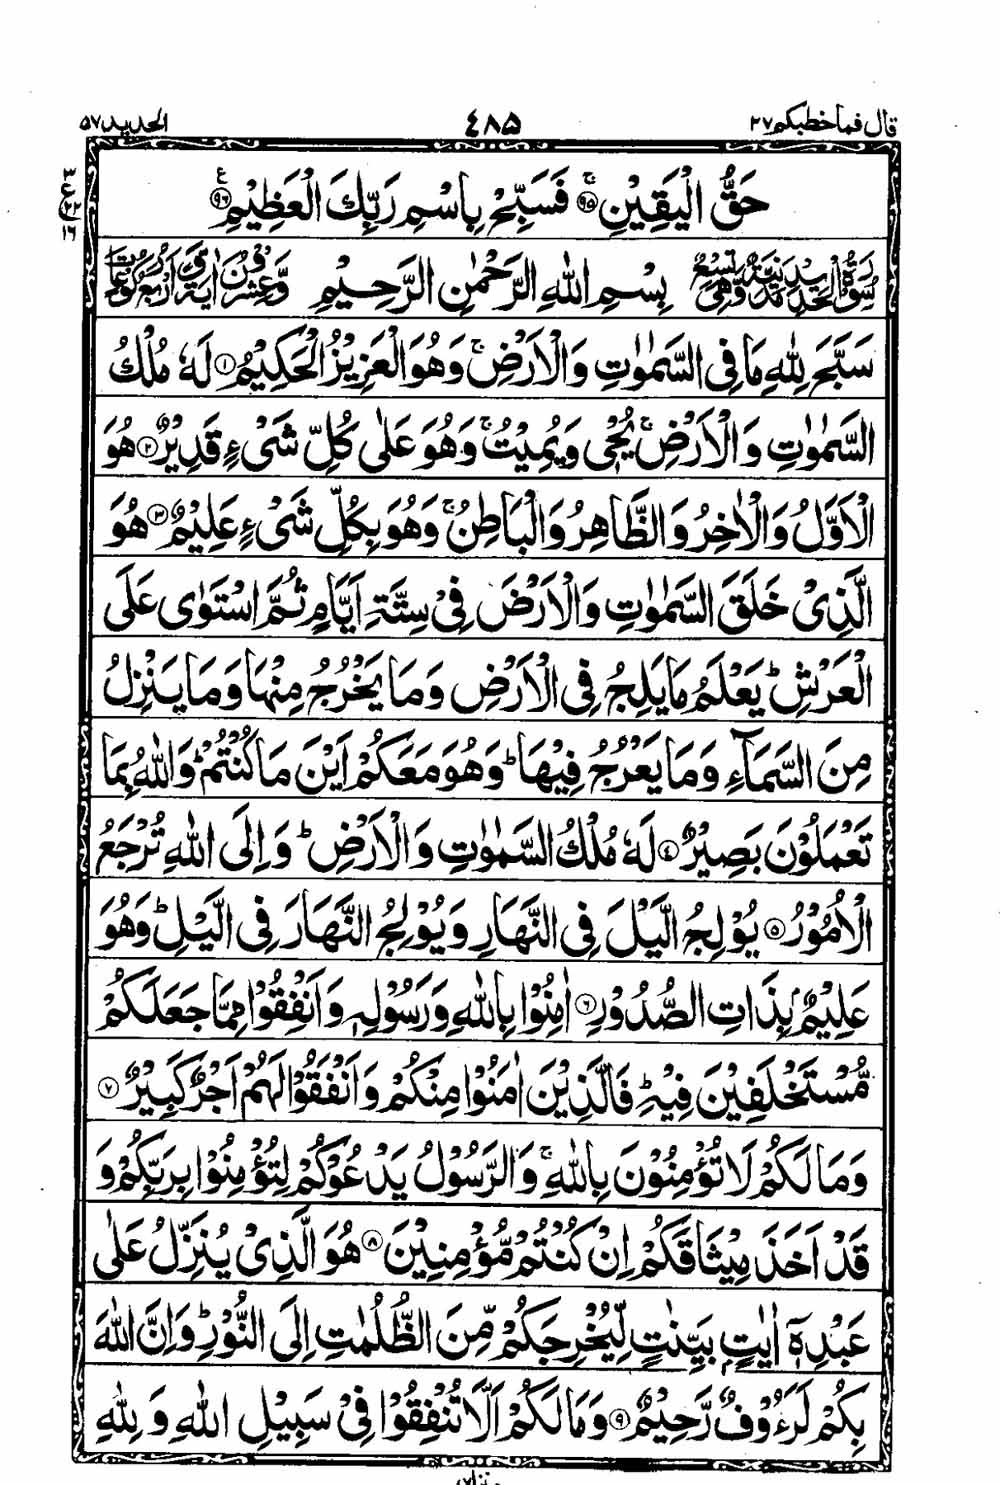 قال فما خطبكم ٢٧ ٤٨٥ الحدید ٥٧
حَقُّ الْیَقِیْنِ ۚ ﴿۹۵﴾ فَسَبِّحْ بِاسْمِ رَبِّكَ الْعَظِیْمِ ﴿۹۶﴾ ع
٣ ع ٢٢ ١٦
سُوْرَةُ الْحَدِیْدِ مَدَنِیَّةٌ وَّهِیَ تِسْعٌ بِسْمِ اللّٰهِ الرَّحْمٰنِ الرَّحِیْمِ وَّعِشْرُوْنَ اٰیَةً وَّاَرْبَعُ رُكُوْعَاتٍ
سَبَّحَ لِلّٰهِ مَا فِی السَّمٰوٰتِ وَالْاَرْضِ ۚ وَهُوَ الْعَزِیْزُ الْحَكِیْمُ ﴿۱﴾ لَهٗ مُلْكُ
السَّمٰوٰتِ وَالْاَرْضِ ۚ یُحْیٖ وَیُمِیْتُ ۚ وَهُوَ عَلٰی كُلِّ شَیْءٍ قَدِیْرٌ ﴿۲﴾ هُوَ
الْاَوَّلُ وَالْاٰخِرُ وَالظَّاهِرُ وَالْبَاطِنُ ۚ وَهُوَ بِكُلِّ شَیْءٍ عَلِیْمٌ ﴿۳﴾ هُوَ
الَّذِیْ خَلَقَ السَّمٰوٰتِ وَالْاَرْضَ فِیْ سِتَّةِ اَیَّامٍ ثُمَّ اسْتَوٰی عَلَی
الْعَرْشِ ؕ یَعْلَمُ مَا یَلِجُ فِی الْاَرْضِ وَمَا یَخْرُجُ مِنْهَا وَمَا یَنْزِلُ
مِنَ السَّمَآءِ وَمَا یَعْرُجُ فِیْهَا ؕ وَهُوَ مَعَكُمْ اَیْنَ مَا كُنْتُمْ ؕ وَاللّٰهُ بِمَا
تَعْمَلُوْنَ بَصِیْرٌ ﴿۴﴾ لَهٗ مُلْكُ السَّمٰوٰتِ وَالْاَرْضِ ؕ وَاِلَی اللّٰهِ تُرْجَعُ
الْاُمُوْرُ ﴿۵﴾ یُوْلِجُ الَّیْلَ فِی النَّهَارِ وَیُوْلِجُ النَّهَارَ فِی الَّیْلِ ؕ وَهُوَ
عَلِیْمٌۢ بِذَاتِ الصُّدُوْرِ ﴿۶﴾ اٰمِنُوْا بِاللّٰهِ وَرَسُوْلِهٖ وَاَنْفِقُوْا مِمَّا جَعَلَكُمْ
مُّسْتَخْلَفِیْنَ فِیْهِ ؕ فَالَّذِیْنَ اٰمَنُوْا مِنْكُمْ وَاَنْفَقُوْا لَهُمْ اَجْرٌ كَبِیْرٌ ﴿۷﴾
وَمَا لَكُمْ لَا تُؤْمِنُوْنَ بِاللّٰهِ ۚ وَالرَّسُوْلُ یَدْعُوْكُمْ لِتُؤْمِنُوْا بِرَبِّكُمْ وَ
قَدْ اَخَذَ مِیْثَاقَكُمْ اِنْ كُنْتُمْ مُّؤْمِنِیْنَ ﴿۸﴾ هُوَ الَّذِیْ یُنَزِّلُ عَلٰی
عَبْدِهٖۤ اٰیٰتٍۭ بَیِّنٰتٍ لِّیُخْرِجَكُمْ مِّنَ الظُّلُمٰتِ اِلَی النُّوْرِ ؕ وَاِنَّ اللّٰهَ
بِكُمْ لَرَءُوْفٌ رَّحِیْمٌ ﴿۹﴾ وَمَا لَكُمْ اَلَّا تُنْفِقُوْا فِیْ سَبِیْلِ اللّٰهِ وَلِلّٰهِ